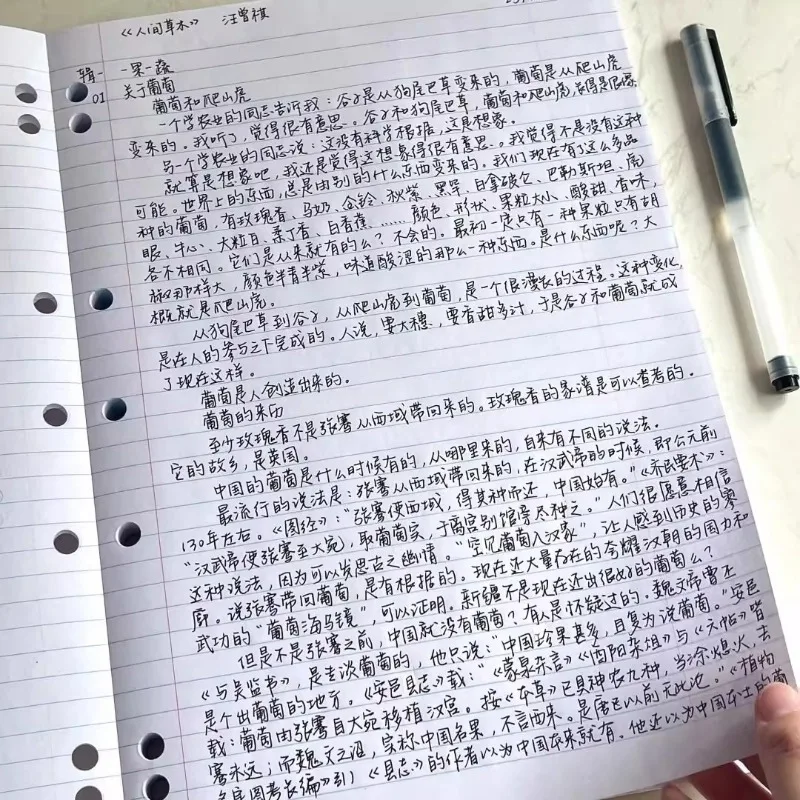 《人间草木》 汪曾祺
辑一 一果一蔬
01 关于葡萄
葡萄和爬山虎
一个学农业的同志告诉我：谷子是从狗尾巴草变来的，葡萄是从爬山虎
变来的。我听了，觉得很有意思。谷子和狗尾巴草，葡萄和爬山虎，长得是很像。
另一个学农业的同志说：这没有科学根据，这是想象。
就算是想象吧，我还是觉得这想象得很有意思。我觉得不是没有这种
可能。世界上的东西，总是由别的什么东西变来的。我们现在有了这么多品
种的葡萄，有玫瑰香、马奶、金铃、秋紫、黑罕、白拿破仑、巴勒斯坦、虎
眼、牛心、大粒白、柔丁香、白香蕉……颜色、形状、果粒大小、酸甜、香味，
各不相同。它们是从来就有的么？不会的。最初一定只有一种果粒只有胡
椒那样大，颜色半青半紫，味道酸涩的那么一种东西。是什么东西呢？大
概就是爬山虎。
从狗尾巴草到谷子，从爬山虎到葡萄，是一个很漫长的过程。这种变化，
是在人的参与之下完成的。人说，要大穗，要香甜多汁，于是谷子和葡萄就成
了现在这样。
葡萄是人创造出来的。
葡萄的来历
至少玫瑰香不是张骞从西域带回来的。玫瑰香的家谱是可以查考的。
它的故乡，是英国。
中国的葡萄是什么时候有的，从哪里来的，自来有不同的说法。
最流行的说法是：张骞从西域带回来的，在汉武帝的时候，即公元前
130年左右。《图经》：“张骞使西域，得其种而还，中国始有。”《齐民要术》：
“汉武帝使张骞至大宛，取葡萄实，于离宫别馆旁尽种之。”人们很愿意相信
这种说法，因为可以发思古之幽情。“空见葡萄入汉家”，让人感到历史的寥
廓。说张骞带回葡萄，是有根据的。现在还大量存在的夸耀汉朝的国力和
武功的“葡萄海马镜”，可以证明。新疆不是现在还出很好的葡萄么？
但是不是张骞之前，中国就没有葡萄？有人是怀疑过的。魏文帝曹丕
《与吴监书》，是专谈葡萄的，他只说：“中国珍果甚多，且复为说葡萄。”安邑
是个出葡萄的地方。《安邑县志》载：“《蒙泉杂言》《酉阳杂俎》与《六帖》皆
载：葡萄由张骞自大宛移植汉宫。按《本草》已具神农九种，当涂熄火，去
骞未远；而魏文之诏，实称中国名果，不言西来。是唐以前无此论。”《植物
名实图考长编》引《县志》的作者以为中国本来就有。他还以为中国本土的葡